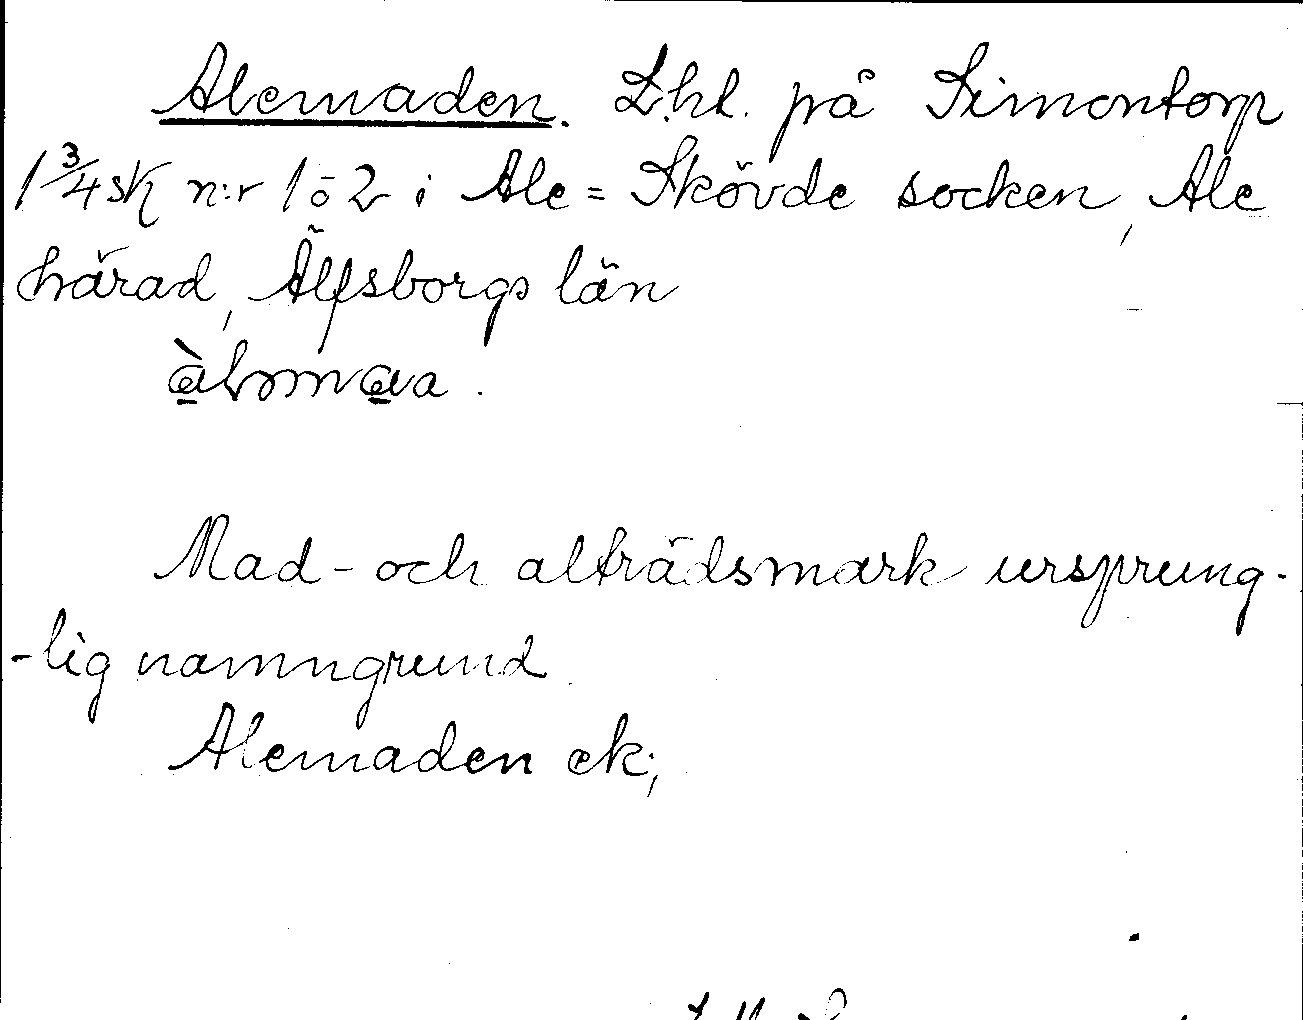 Alemaden. Lhl. på Simontorp
1 3/4 sk n:r 1 o 2 i Ale = Skövde socken, Ale
härad, Älfsborgs län
Mad- och alträdsmark ursprung-
-lig namngrund
Alemaden ek;